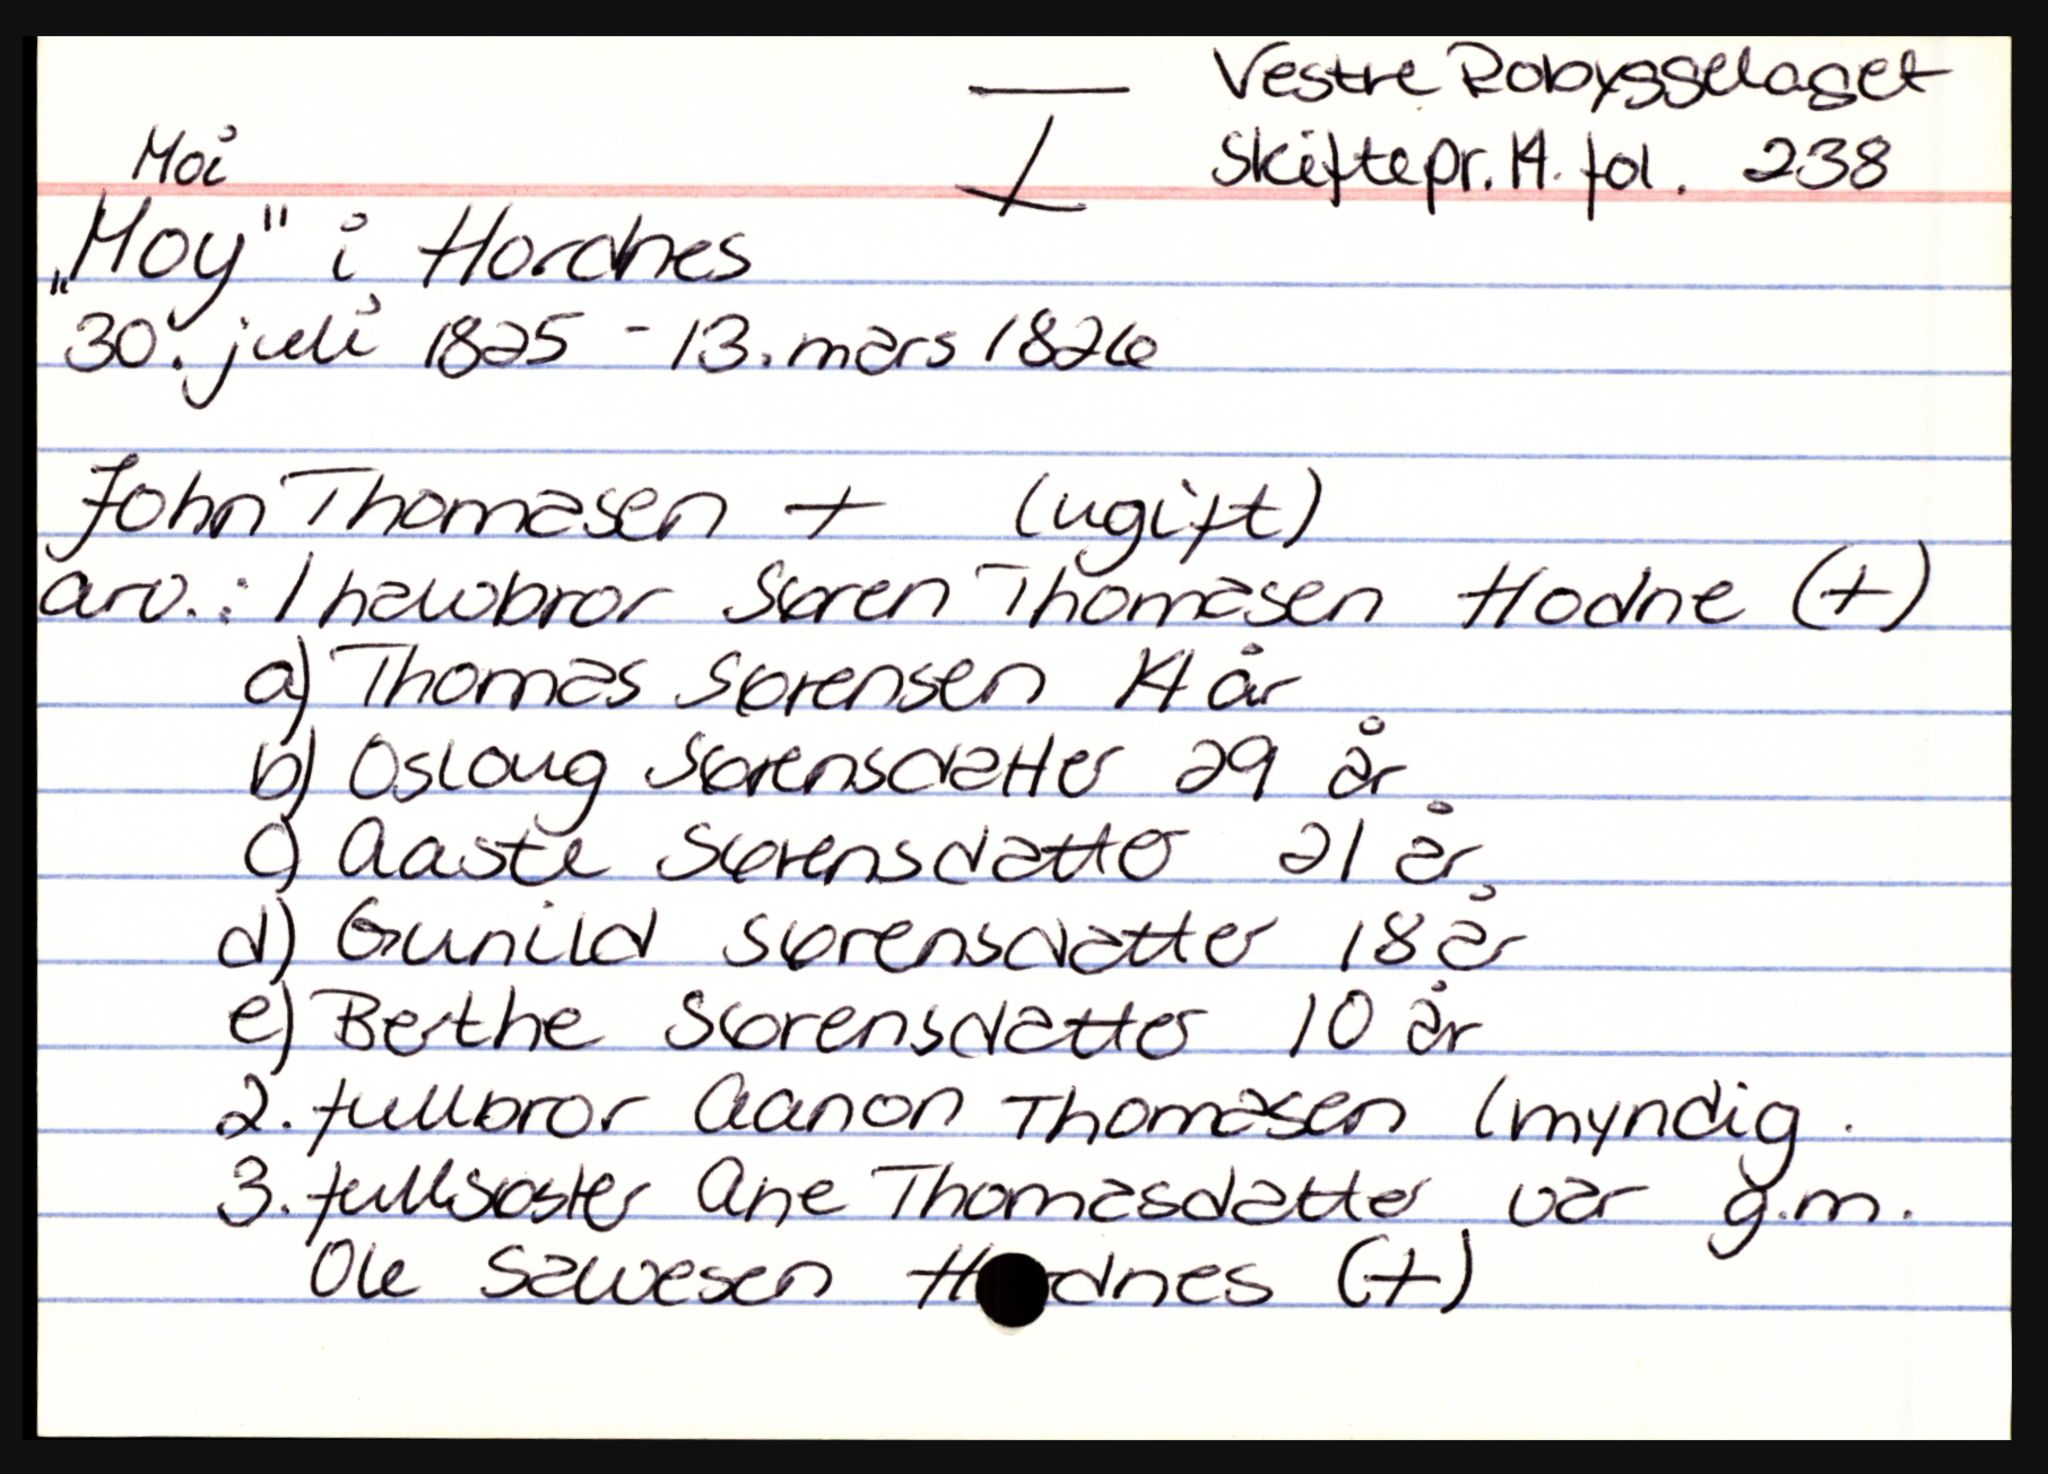 I Vestre Robyggelaget
Moi Skiftepr. 14. fol. 238
"Moy" i Hordnes
30. juli 1825 - 13. mars 1826
John Thomasen + (ugift)
arv.: 1 halvbror Søren Thomasen Hodne (+)
a) Thomas Sørensen 14 år
b) Osloug Sørensdatter 29 år
c) Aaste Sørensdatter 21 år
d) Gunild Sørensdatter 18 år
e) Berthe Sørensdatter 10 år
2. fullbror Aanon Thomasen (myndig.
3. fullsøster Ane Thomasdatter var g.m.
Ole Salvesen Hordnes (+)